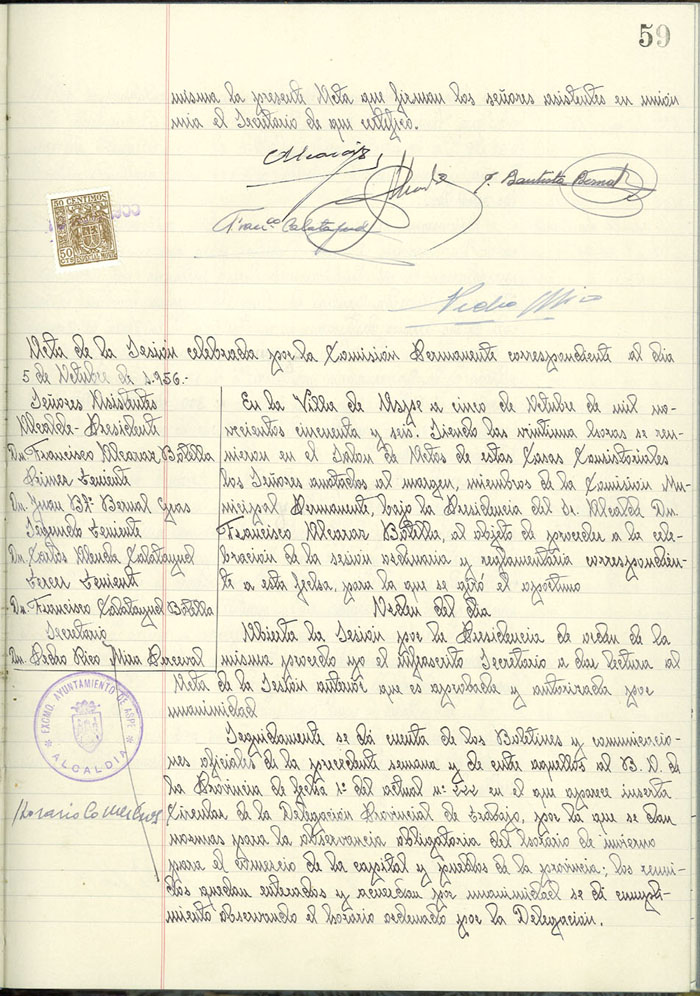 59
misma la presente Acta que firman los señores asistentes en unión
mia el Secretario de que certifico.
Alcaraz
J. Bautista Bernal
Franco Calatayud
Pedro Mira
50 CENTIMOS
50
Acta de la Sesión celebrada por la Comisión Permanente correspondiente al dia
5 de Octubre de 1.956.-
Señores Asistentes
Alcalde-Presidente
Dn. Francisco Alcaraz Botella
Primer Teniente
Dn. Juan Bta. Bernal Gras
Segundo Teniente
Dn. Carlos Calatayud
Tercer Teniente
Dn. Francisco Calatayud Botella
Secretario
Dn. Pedro Mira
En la Villa de Aspe a cinco de Octubre de mil no-
vecientos cincuenta y seis. Siendo las veintiuna horas se reu-
nieron en el Salon de Actos de estas Casas Consistoriales
los Señores anotados al margen, miembros de la Comisión Mu-
nicipal Permanente, bajo la Presidencia del Sr. Alcalde Dn.
Francisco Alcaraz Botella, al objeto de proceder a la cele-
bración de la sesión ordinaria y reglamentaria correspondien-
te a esta fecha, para la que se giró el oportuno
Orden del dia
Abierta la Sesión por la Presidencia de orden de la
misma procedo yo el infrascrito Secretario a dar lectura al
Acta de la Sesión anterior que es aprobada y autorizada por
unanimidad
Seguidamente se dá cuenta de los Boletines y comunicacio-
nes oficiales de la precedente semana y de entre aquellos al B. O. de
la Provincia de fecha 1º del actual nº 222 en el que aparece inserta
Circular de la Delegación Provincial de Trabajo, por la que se dan
normas para la observancia obligatoria del horario de invierno
para el comercio de la capital y pueblos de la provincia; los reuni-
dos quedan enterados y acuerdan por unanimidad se dé cumpli-
miento observando el horario ordenado por la Delegación.
EXCMO. AYUNTAMIENTO DE ASPE
ALCALDIA
Horario Comercios